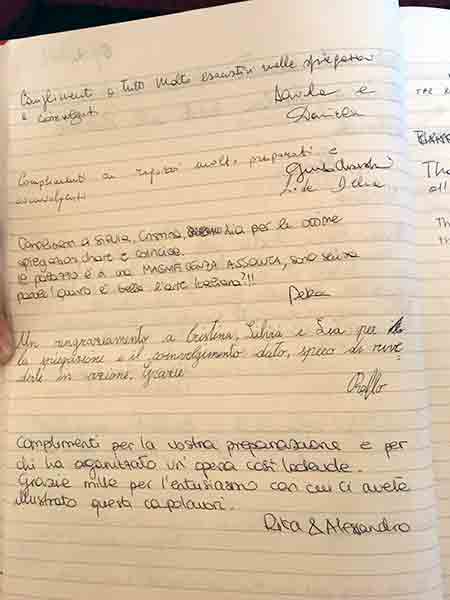 Complimenti a tutti molto esaustivi nelle spiegazioni
e coinvolgenti
Davide e
Daniela
Complimenti ai ragazzi molto preparati e
coinvolgenti
Complimenti a Silvia, Cristina, Lia per le ottime
spiegazioni chiare e concise.
Il palazzo è di una MAGNIFICENZA ASSOLUTA, sono senza
parole! Quanto è bella l'arte italiana?!!
Un ringraziamento a Cristina, Silvia e Lia per
la spiegazione e il coinvolgimento dato, spero di rive
derle in azione. Grazie
Complimenti per la vostra preparazione e per
chi ha organizzato un'opera così lodevole.
Grazie mille per l'entusiasmo con cui ci avete
illustrato questi capolavori.
Rita & Alessandro